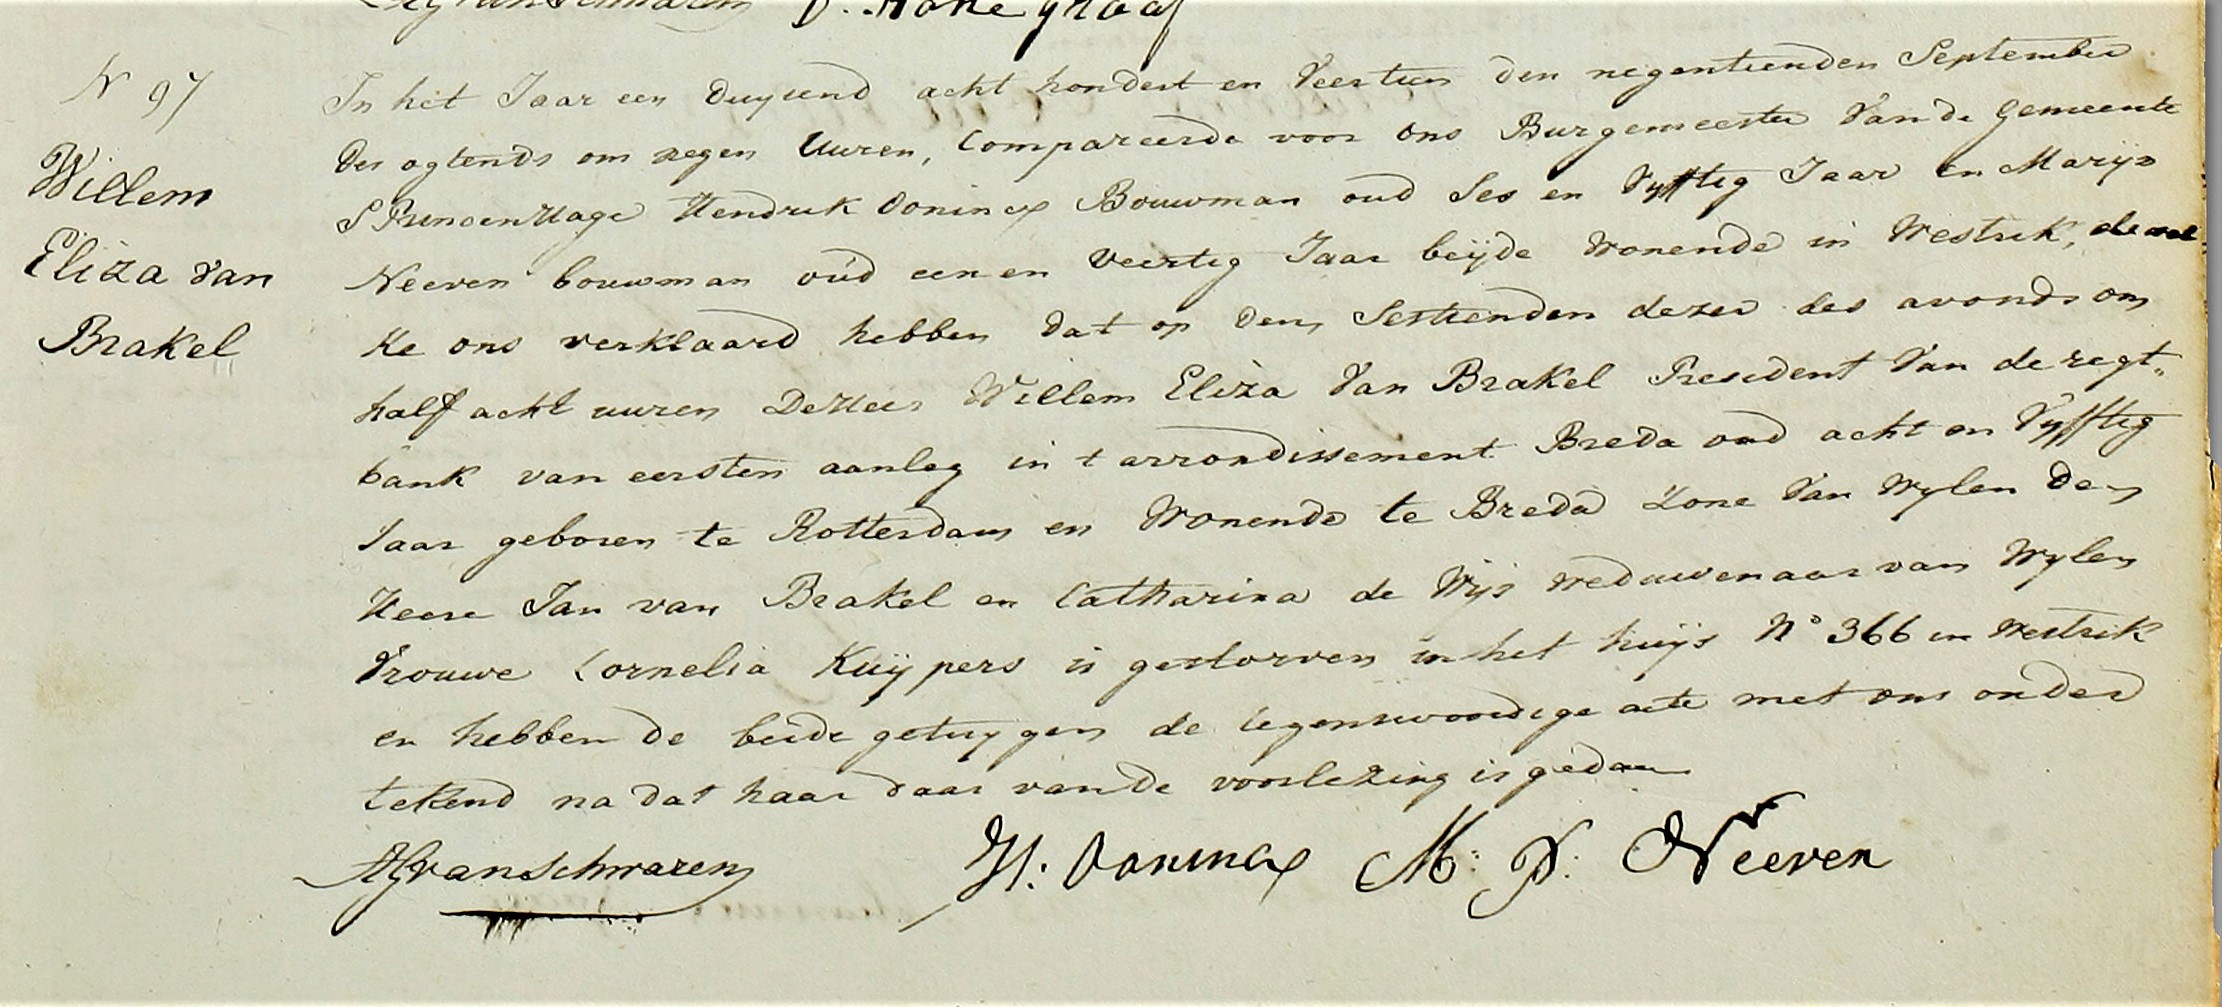 D. Hone graaf
N 97
Willem
Eliza Van
Brakel
In het Jaar een Duysend acht hondert en Veertien den negentienden September
Des ogtends om negen Uuren, Compareerde voor ons Burgemeester Van de Gemeente
S Princenhage Hendrik Oonincx Bouwman oud Ses en Vyftig Jaar en Marijn
Neeven bouwman oud een en Veertig Jaar beijde Wonende in Westrik, dewel
Ke ons verklaard hebben dat op den Sestienden dezer des avonds om
half acht uuren De Heer Willem Eliza Van Brakel President Van de regt„
bank van eersten aanleg in t arrondissement Breda oud acht en Vyfftig
Jaar geboren te Rotterdam en Wonende te Breda Zone Van Wylen den
Heere Jan van Brakel en Catharina de Wijs weduwenaar van Wylen
Vrouwe Cornelia Kuÿpers is gestorven in het huijs N° 366 in Westrik
en hebben de beide getuygen de tegenswoordige acte met ons onder
tekend na dat haar daar van de voorlezing is gedaan
H: Oonincx M: V: Neeven